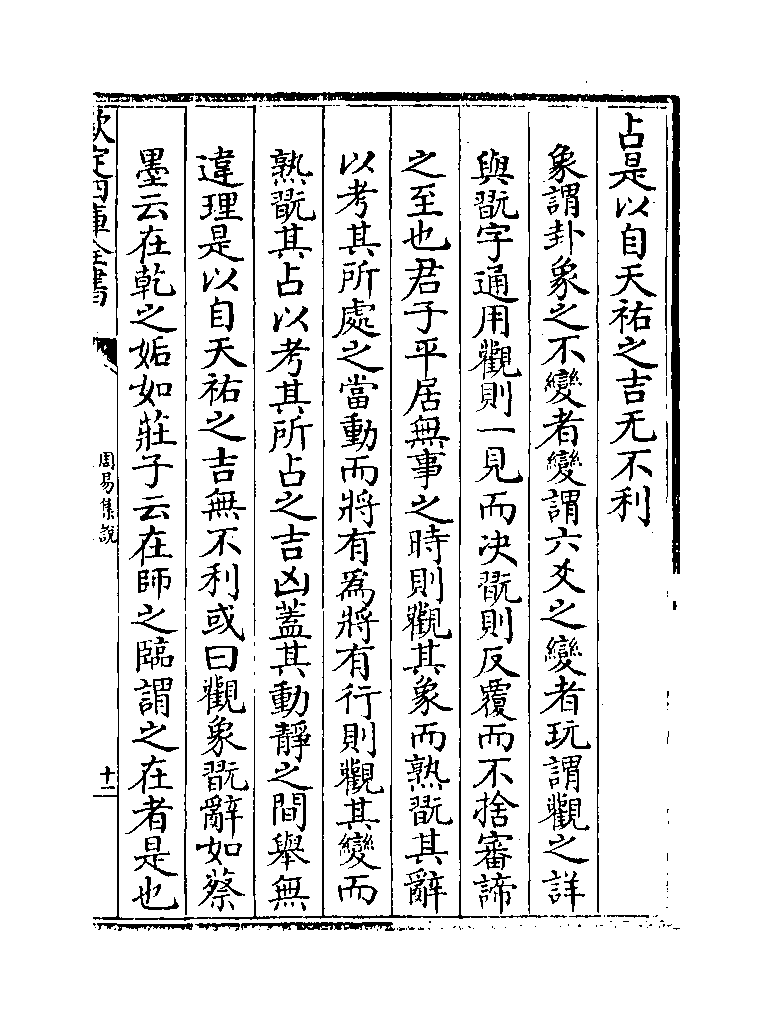 占是以自天祐之吉无不利
象謂卦象之不變者變謂六爻之變者玩謂觀之詳
與翫字通用觀則一見而决翫則反覆而不捨審諦
之至也君子平居無事之時則觀其象而熟翫其辭
以考其所處之當動而將有為將有行則觀其變而
熟翫其占以考其所占之吉凶蓋其動靜之間舉無
違理是以自天祐之吉無不利或曰觀象翫辭如蔡
墨云在乾之姤如莊子云在師之臨謂之在者是也
欽定四庫全書
周易集說
十二